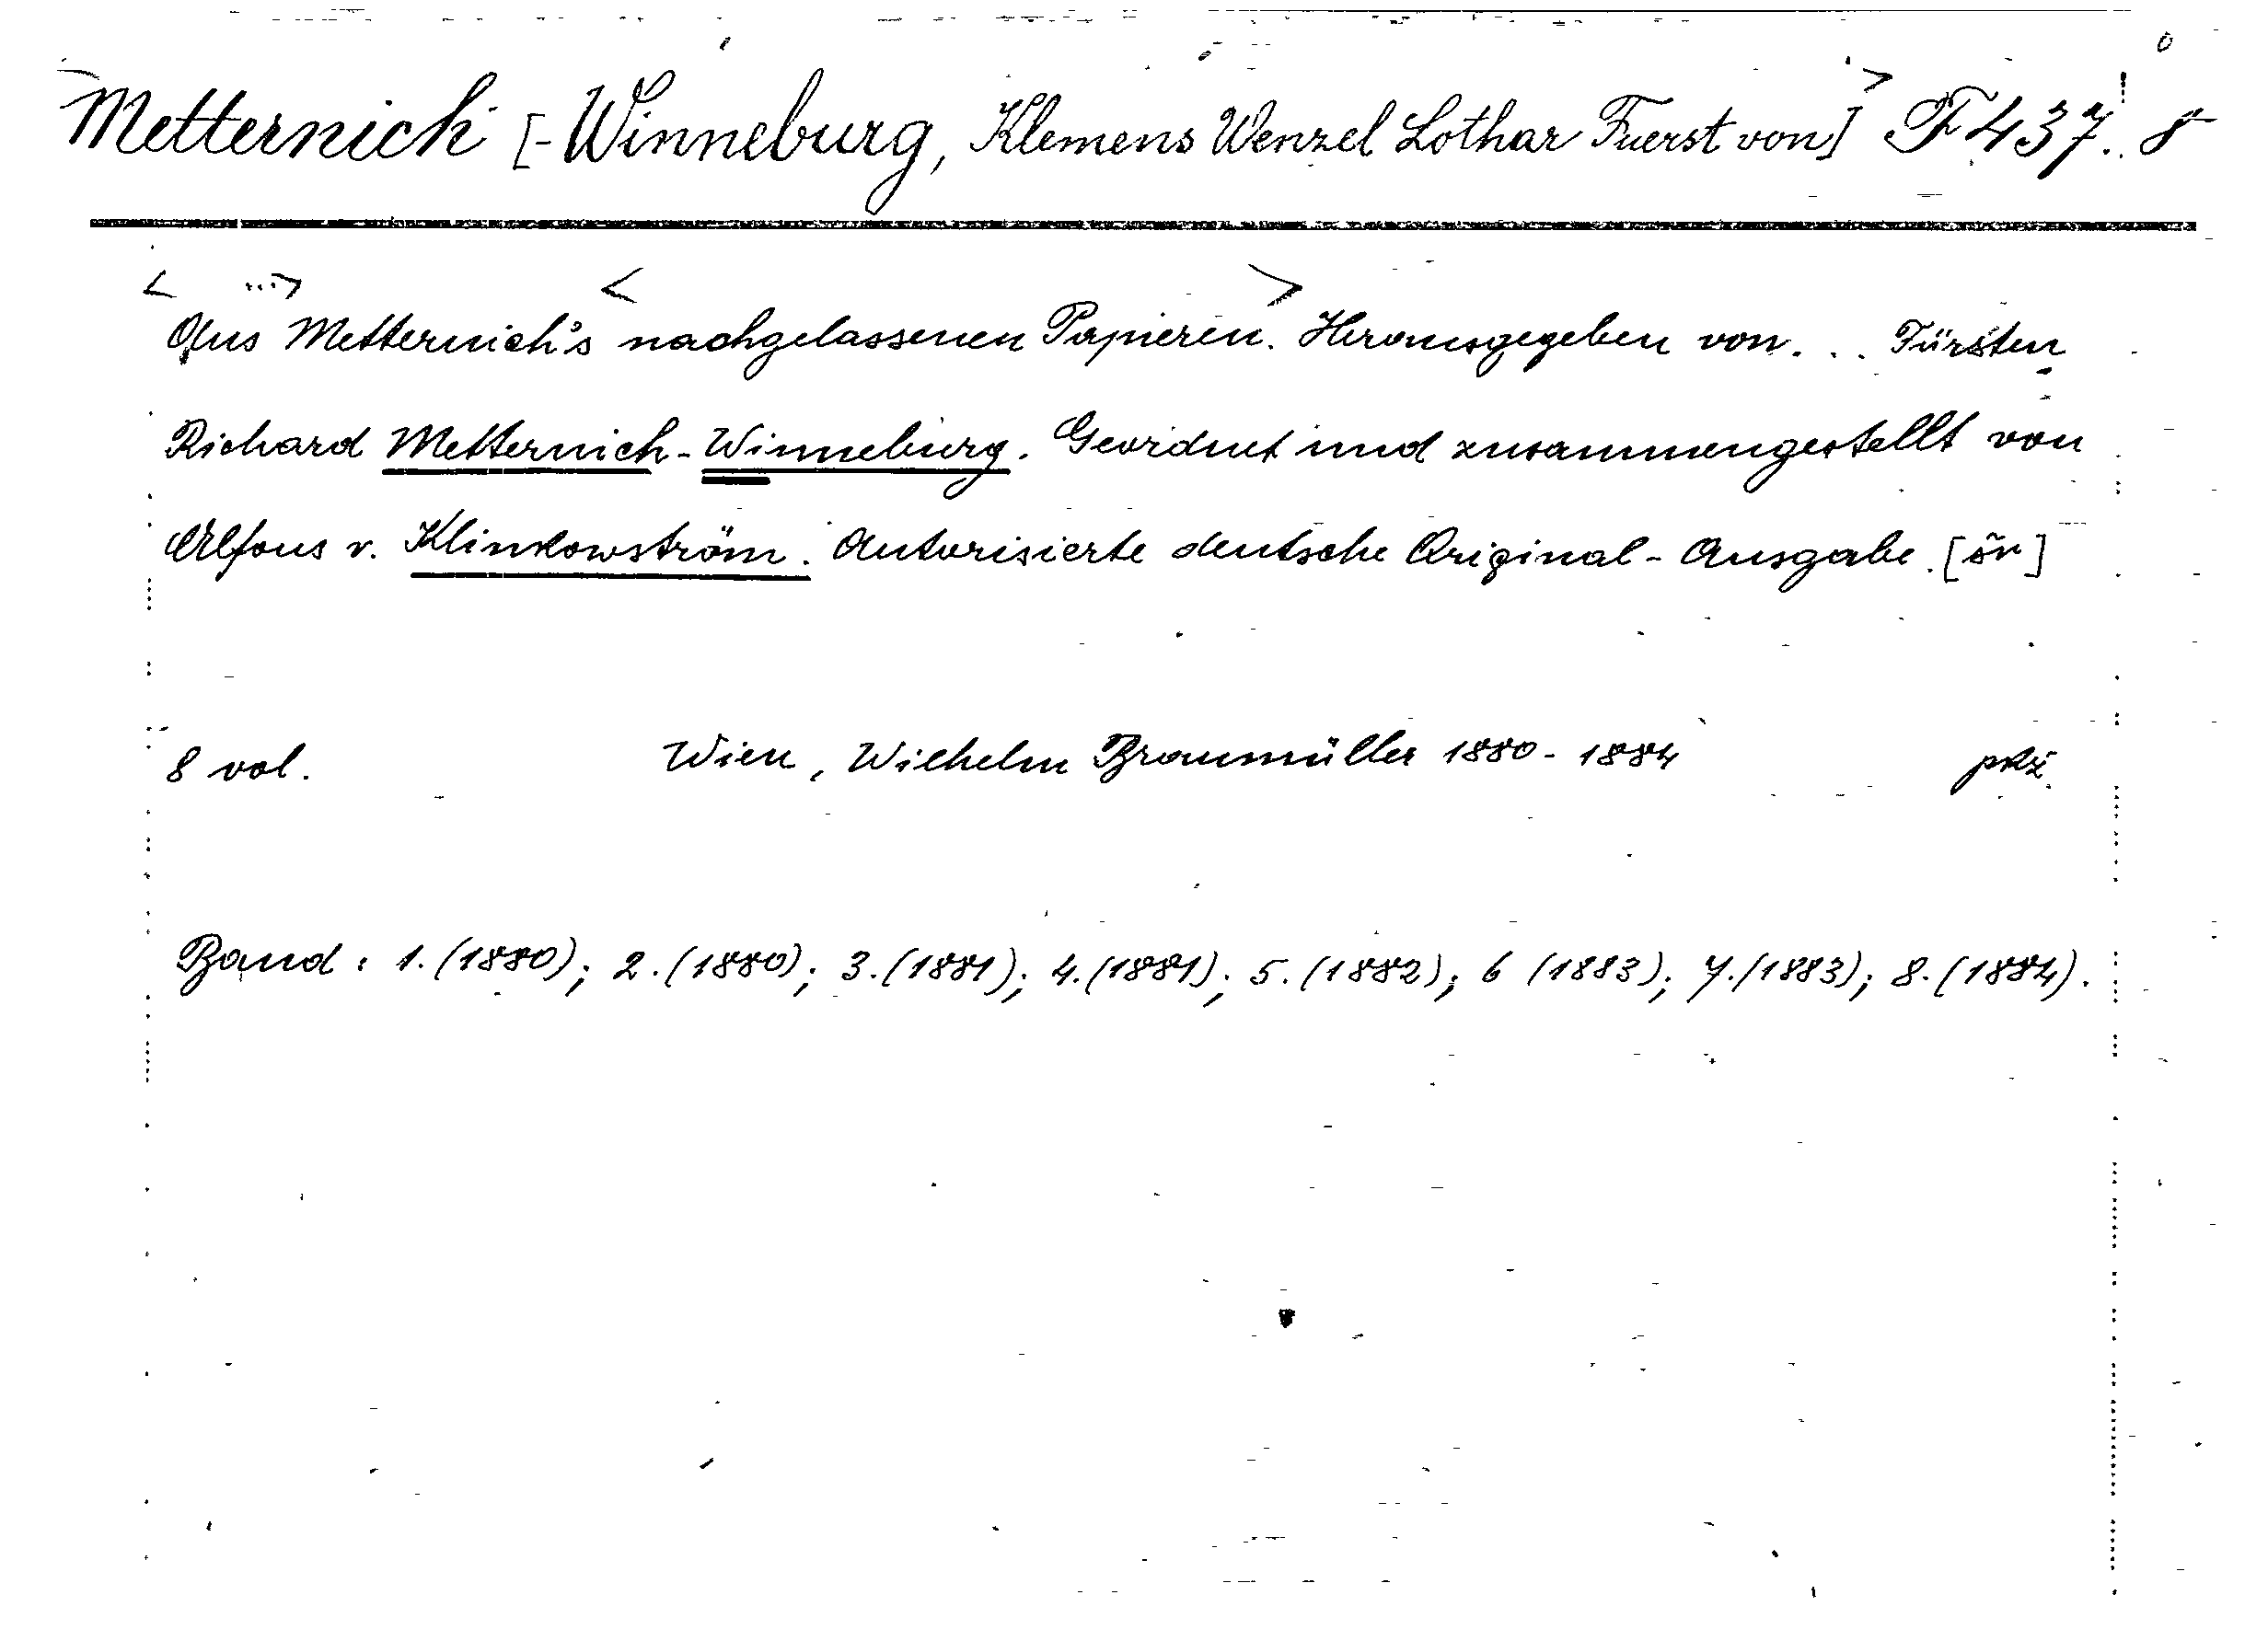 Metternich [-Winneburg, Klemens Wenzel Lothar Fuerst von] F 437. 8
Aus Metternich's nachgelassenen Papieren. Herausgegeben von... Fürsten
Richard Metternich-Winneburg. Geordnet und zusammengestellt von
Alfons v. Klinkowström. Autorisierte deutsche Original-Ausgabe. [ör]
8 vol. Wien, Wilhelm Braumüller 1880-1884 pkž
Band: 1. (1880); 2. (1880); 3. (1881); 4. (1881); 5. (1882); 6 (1883); 7. (1883); 8. (1884).